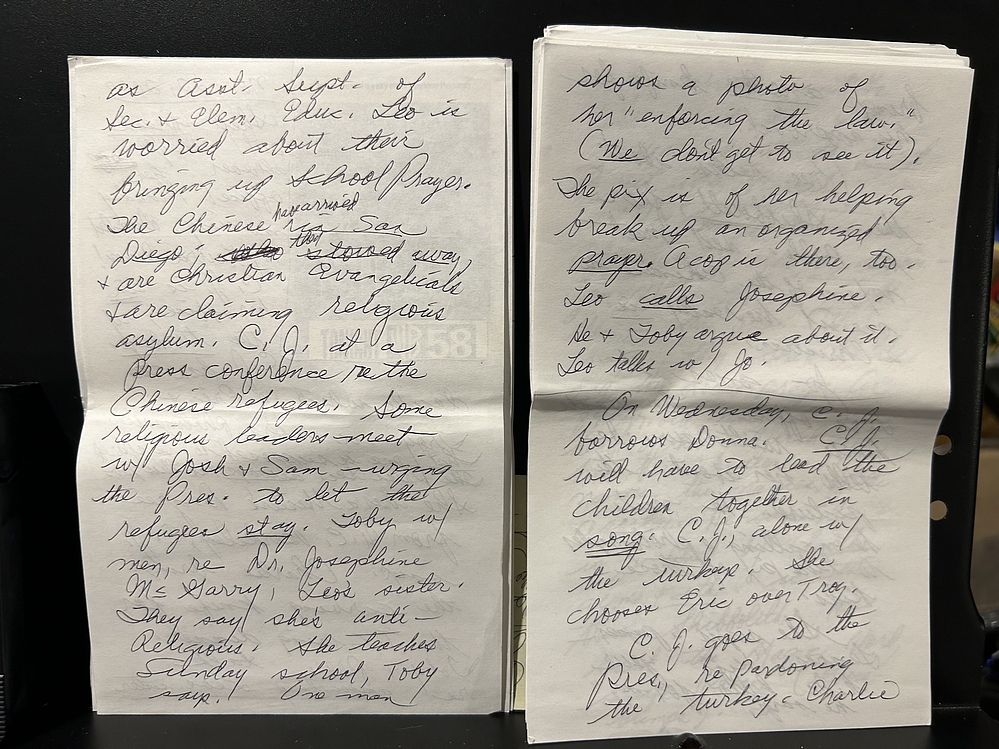 as Asst. Supt. of
Sec. & Elem. Educ. Leo is
worried about their
bringing up School Prayer.
The Chinese have arrived in San
Diego; that stowed away,
& are Christian Evangelicals
& are claiming religious
asylum. C. J. at a
Press conference re the
Chinese refugees. Some
religious leaders meet
w/ Josh & Sam - urging
the Pres. to let the
refugees stay. Toby w/
men, re Dr. Josephine
Mc Garry, Leo's sister.
They say she's anti-
Religious. She teaches
Sunday school, Toby
says. One man
shows a photo of
her "enforcing the law."
(We don't get to see it).
The pix is of her helping
break up an organized
prayer. A cop is there, too.
Leo calls Josephine.
He & Toby argue about it.
Leo talks w/ Jo.
On Wednesday, C. J.
borrows Donna. C. J.
will have to lead the
children together in
song. C. J., alone w/
the turkeys. She
chooses Eric over Troy.
C. J. goes to the
Pres., re pardoning
the turkey. Charlie